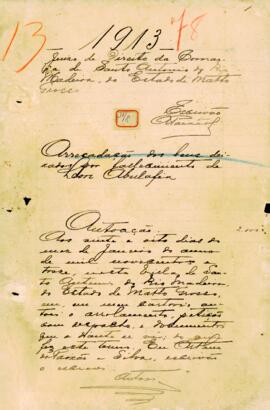 13
1913
78
Juizo de Direito da Comar-
ca de Santo Antonio do Rio
Madeira, do Estado de Matto
Grosso
Escrivão
Arrecadação dos bens dei-
xados por fallecimento de
Leon Abulafia
Autoação
Aos vinte e oito dias do
mez de Janeiro do anno
de mil novecentos e
treze, nesta Villa de San-
to Antonio do Rio Madeira
do Estado de Matto Grosso,
em meu cartorio, au-
tuei o arrolamento, petição
com despacho, e documentos
que a
fiz este termo. Eu Arthur
e Silva, escrivão
o escrevi